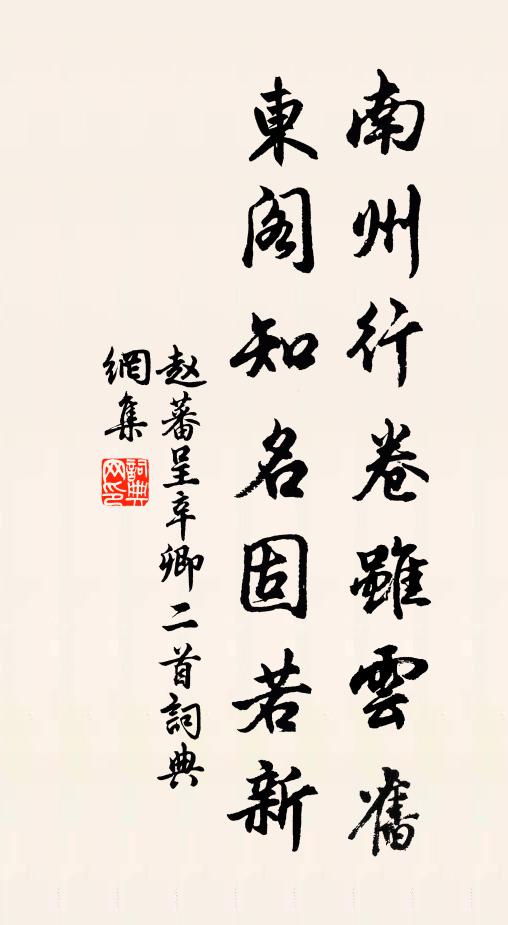 南州行卷雖雲舊
東閣知名固若新
赵蕃呈辛卿二首詞典
網集
詞典
网印